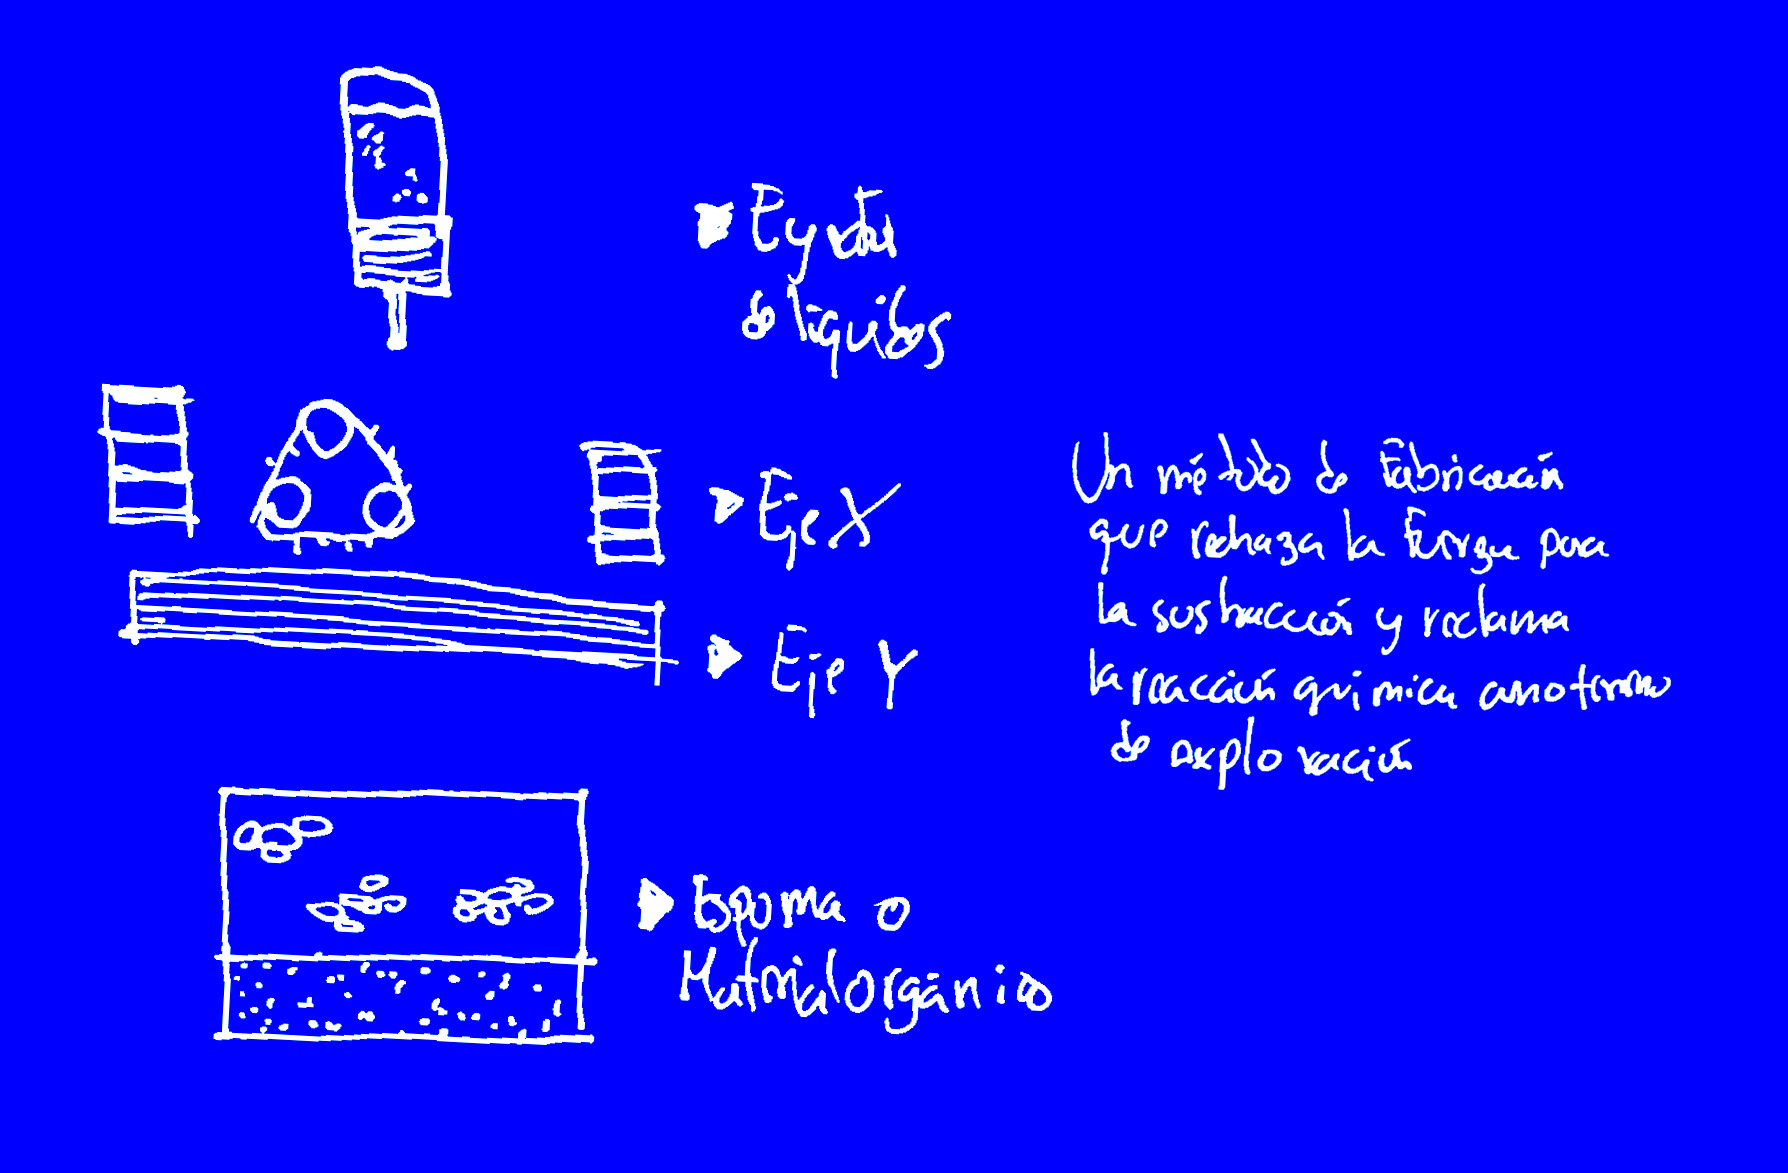 Eyector
de liquidos
Eje X
Eje Y
Espuma o
Material orgánico
Un método de Fabricación
que rechaza la Fuerza para
la sustracción y reclama
la reacción química como termino
de exploración